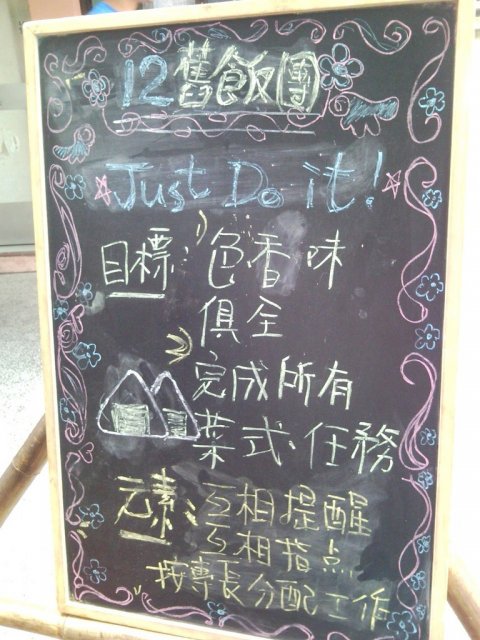 12舊飯團
Just Do it!
目標: 色香味
俱全
完成所有
菜式任務
元素: 互相提醒
互相指点
按專長分配工作